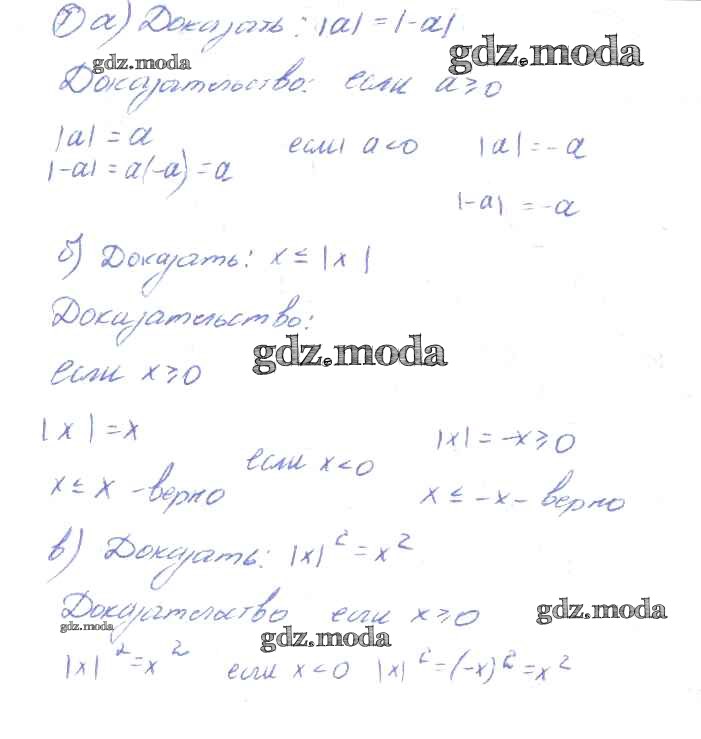 1) а) Доказать: |a| = |-a|
gdz.moda
gdz.moda
Доказательство: если a ≥ 0
|a| = a
если a < 0 |a| = -a
|-a| = a(-a) = a
|-a| = -a
б) Доказать: x ≤ |x|
Доказательство:
gdz.moda
если x ≥ 0
|x| = x
если x < 0
|x| = -x ≥ 0
x ≤ x - верно
x ≤ -x - верно
в) Доказать: |x|² = x²
Доказательство если x ≥ 0
gdz.moda
gdz.moda
gdz.moda
|x|² = x² если x < 0 |x|² = (-x)² = x²